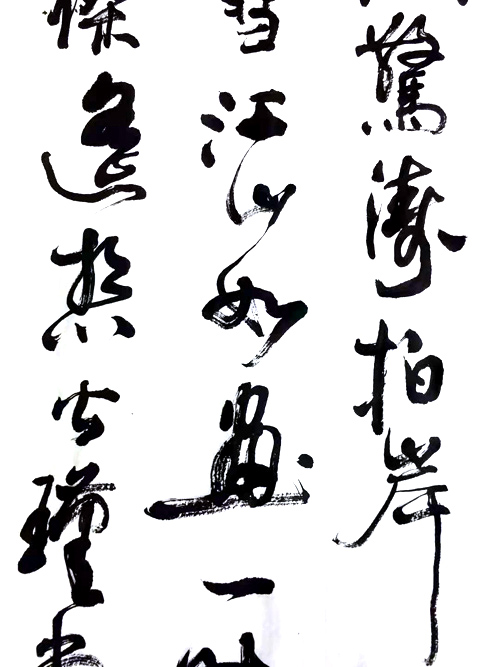 驚濤拍岸
雪江山如畫一
傑遥想公瑾